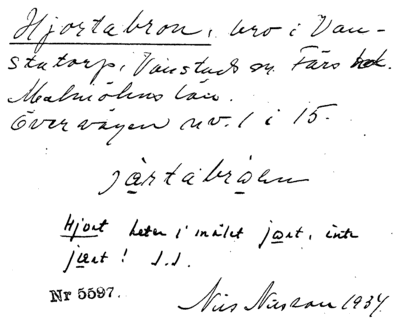 Hjortabron, bro i Van-
statorp, Vanstads sn. Färs hd.
Malmöhus län.
Över vägen nv. 1 i 15.
jartabråen
Hjort heter i målet jort, inte
jært! S.J.
Nr 5597.
Nils Nilsson 1934